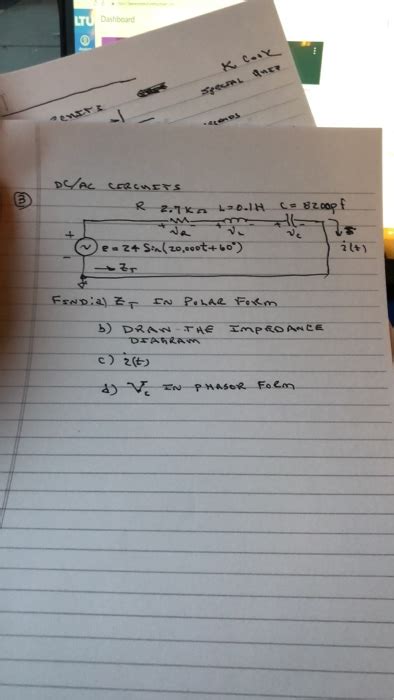 LTU Dashboard
K Cook
SPECIAL QUIZ
DC/AC CIRCUITS
3
R 2.7KΩ L=0.1H C= 8200pf
+ - + - + -
VR VL VC
+ I
e = 24 Sin(20,000t+60°) i(t)
-
→ ZT
FIND: a) ZT IN POLAR FORM
b) DRAW THE IMPEDANCE
DIAGRAM
c) i(t)
d) Vc IN PHASOR FORM